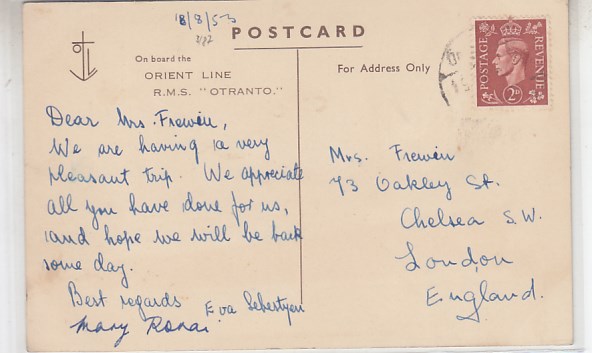 18/8/53
POSTCARD
On board the
ORIENT LINE
R.M.S. "OTRANTO."
For Address Only
POSTAGE
REVENUE
2D
Dear Mrs. Frewin,
We are having a very
pleasant trip. We appreciate
all you have done for us,
and hope we will be back
some day.
Best regards
Eva Sebestyen
Mary Ronai
Mrs. Frewin
73 Oakley St.
Chelsea S.W.
London
England.